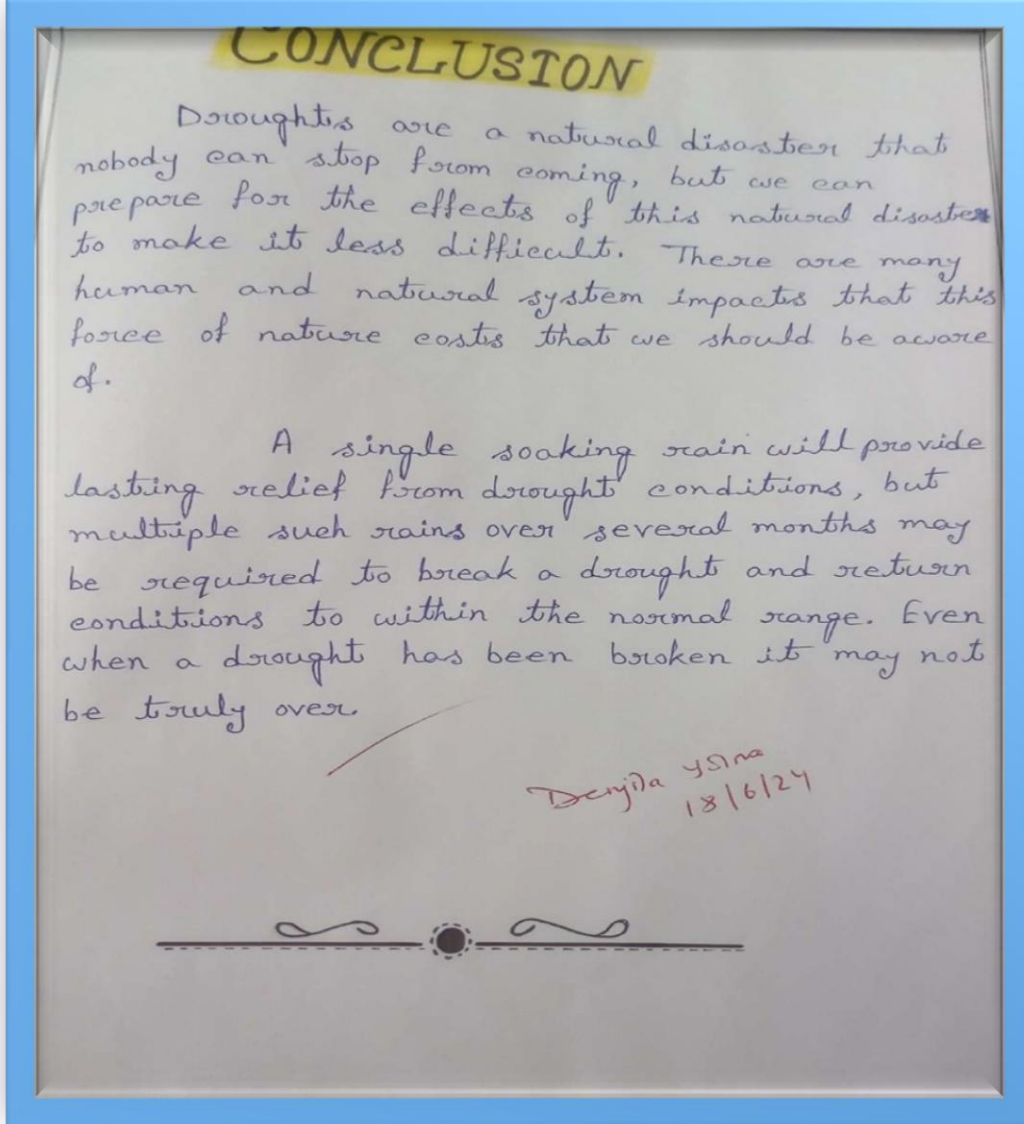 CONCLUSION
Droughts are a natural disaster that
nobody can stop from coming, but we can
prepare for the effects of this natural disaster
to make it less difficult. There are many
human and natural system impacts that this
force of nature costs that we should be aware
of.
A single soaking rain will provide
lasting relief from drought conditions, but
multiple such rains over several months may
be required to break a drought and return
conditions to within the normal range. Even
when a drought has been broken it may not
be truly over.
18/6/24